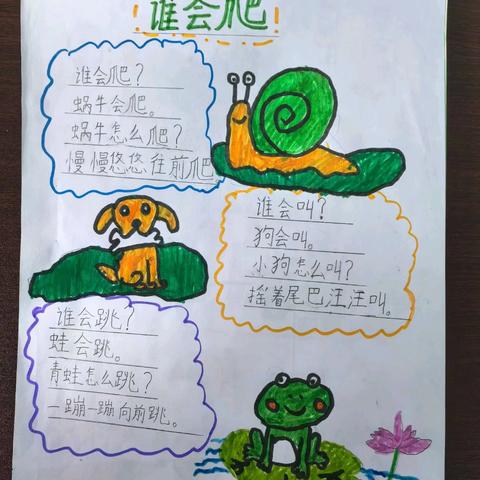 谁会爬
谁会爬？
蜗牛会爬。
蜗牛怎么爬？
慢慢悠悠往前爬
谁会叫？
狗会叫。
小狗怎么叫？
摇着尾巴汪汪叫。
谁会跳？
蛙会跳。
青蛙怎么跳？
一蹦一蹦向前跳。